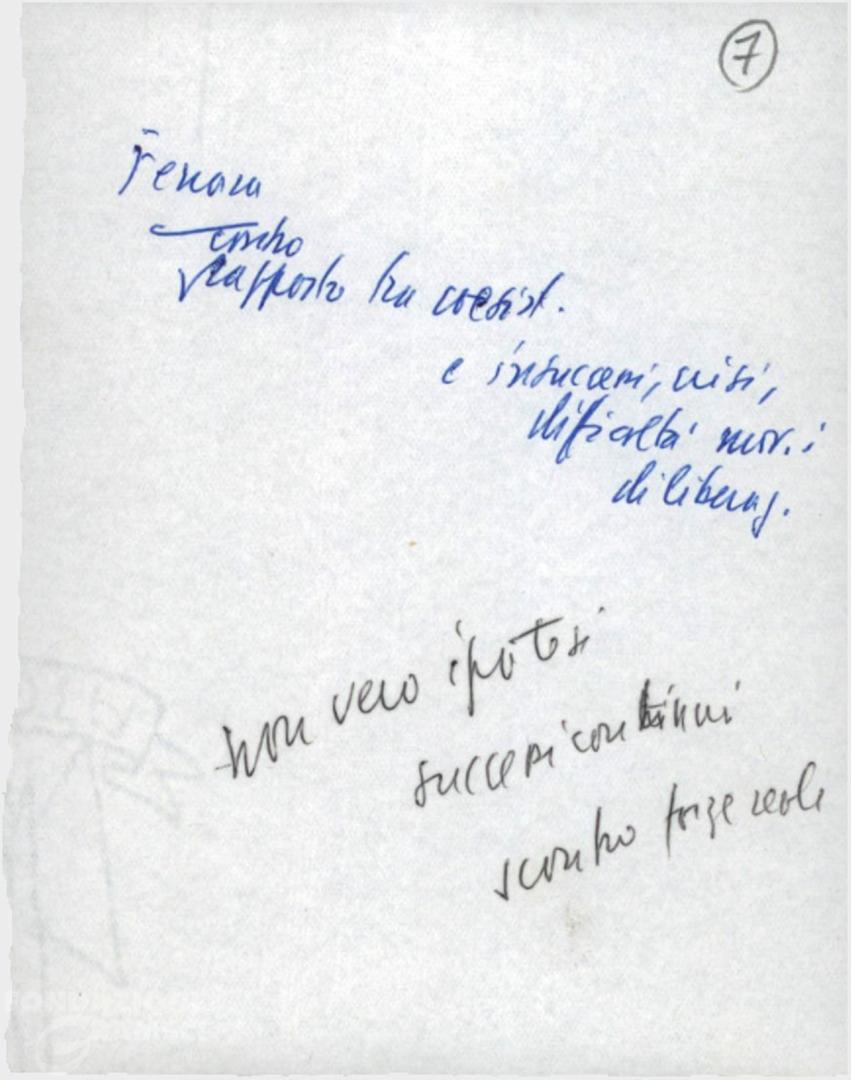 7
Ferrara
contro
rapporto tra coesist.
e insuccessi, crisi,
difficoltà mov.i
di liberaz.
non vero ipotesi
successi continui
scontro forze reali
FONDAZIONE